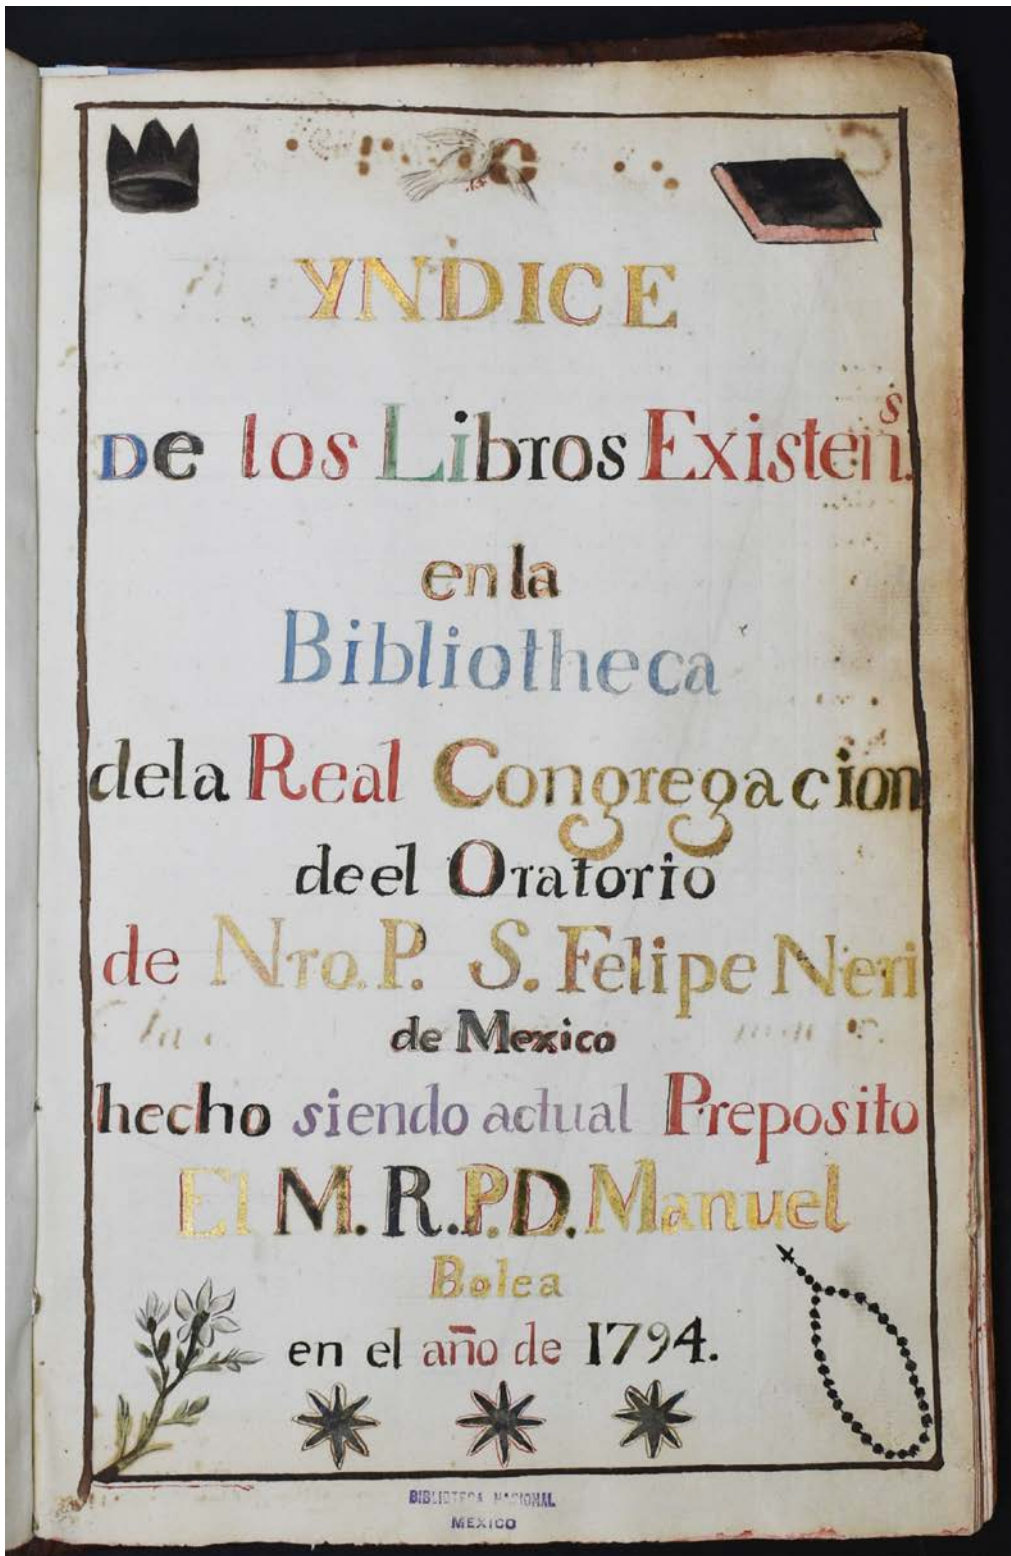 YNDICE
De los Libros Existen̄.ˢ
en la
Bibliotheca
dela Real Congregacion
deel Oratorio
de Nro. P. S. Felipe Neri
de Mexico
hecho siendo actual Preposito
El M. R. P. D. Manuel
Bolea
en el año de 1794.
BIBLIOTECA NACIONAL
MEXICO